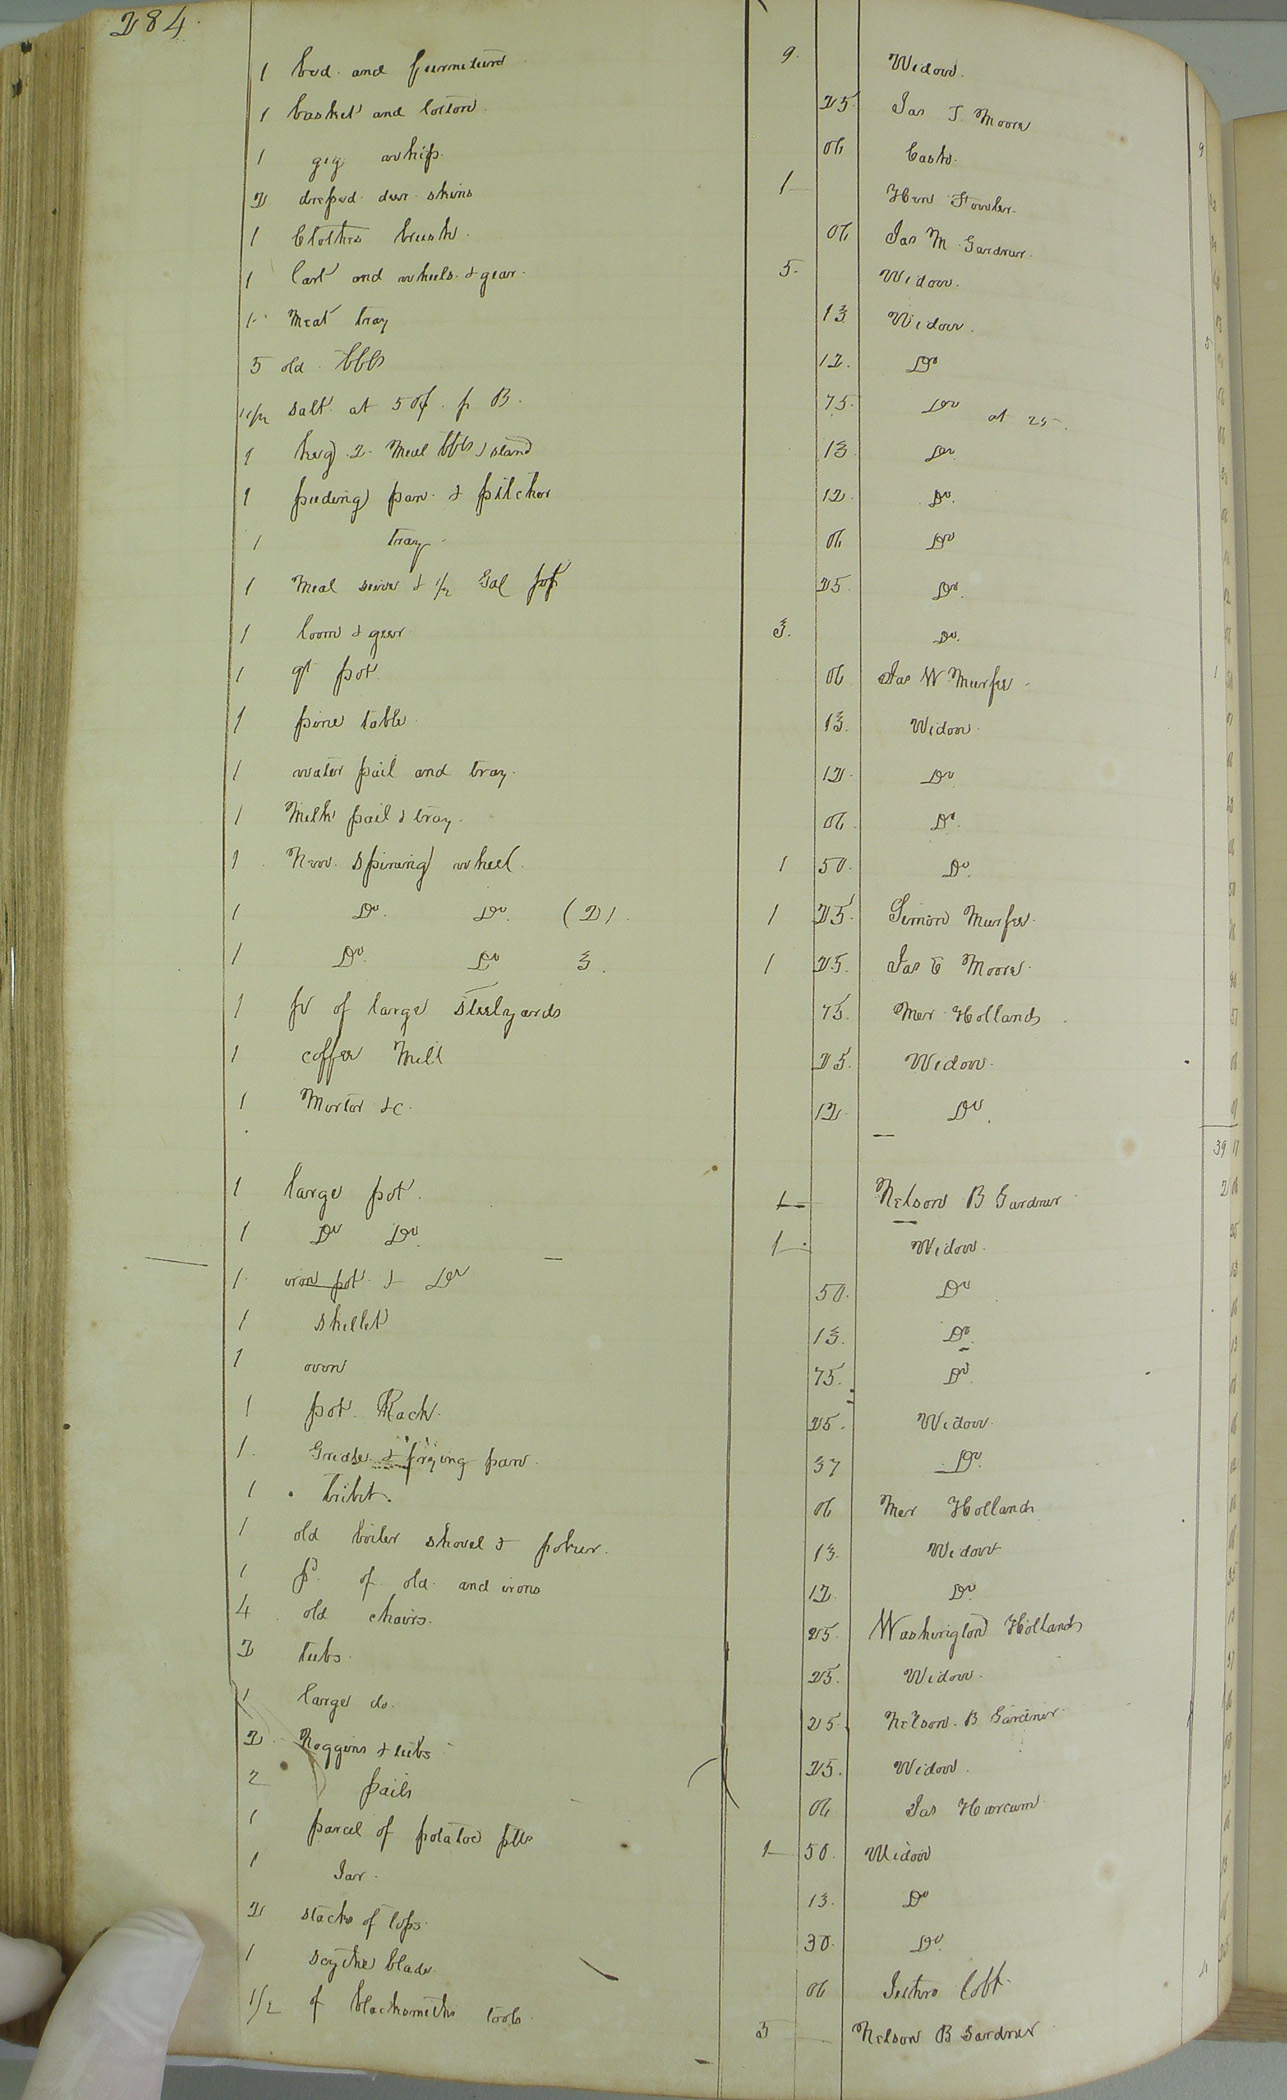 284.
1 bed and furniture 9. Widow.
1 basket and Cotton 25. Jas T Moore
1 gig whip. 06 Cash.
2 dressed deer skins 1 — Hen Fowler.
1 Clothes brush. 06 Jas M Gardner.
1 Cart and wheels & gear. 5. Widow.
1 Meat tray 13 Widow.
5 old bbls 12. Do
salt at 50¢ pr B. 75. Do at 25.
1 keg 2 Meal bbls & stand 13 Do
1 puding pan & pitcher 12 Do.
1 tray 06 Do
1 Meal seive & 1/2 Gal pot 25 Do.
1 loom & gear 3. Do.
1 qt pot 06 Jas W Murfee
1 pine table 13. Widow.
1 water pail and tray. 12 Do
1 Milk pail & tray. 06 Do.
1 New Spining wheel 1 50. Do.
1 Do. Do. (2) 1 25. Simon Murfee.
1 Do. Do 3. 1 25. Jas E Moore.
1 pr of large Steelyards 75. Mer Holland
1 coffee Mill 25. Widow.
1 Mortor &c. 12 Do.
1 large pot. 1 — Nelson B Gardner
1 Do Do. 1 — Widow.
1 iron pot & Do 50. Do
1 skillet 13. Do.
1 oven 75. Do.
1 pot Rack. 25. Widow.
1 Grease & frying pan. 37 Do.
1 tribit. 06 Mer Holland
1 old boiler shovel & poker. 13. Widow
1 pr of old and irons 12. Do
4 old chairs. 25. Washington Holland
2 tubs. 25. Widow.
1 large do. 25. Nelson B Gardner
2 Noggins & tubs 25. Widow.
2 pails 06 Jas Harcum
1 parcel of potatoe 1 50. Widow
1 Jar. 13. Do
2 stacks of tops. 30. Do.
1 scythe blade 06 Jethro Cobb.
1/2 of blacksmiths tools. 3 — Nelson B Gardner